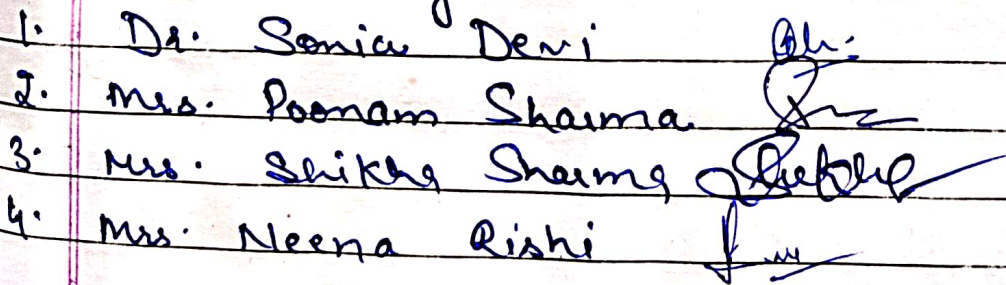 1. Dr. Sonia Devi
2. Mrs. Poonam Sharma
3. Mrs. Shikha Sharma
4. Mrs. Neena Rishi